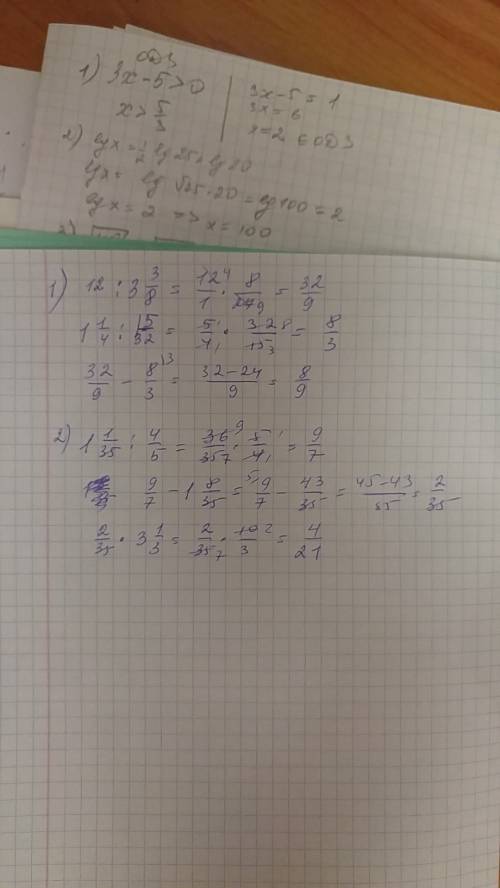 ОДЗ
1) 3x-5>0
x>5/3
3x-5=1
3x=6
x=2 ∈ ОДЗ
2) lgx=1/2 lg25+lg20
lgx= lg √25·20=lg100=2
lgx=2 => x=100
1) 12 : 3 3/8 = 12/1 · 8/27 = 32/9
1 1/4 : 15/32 = 5/4 · 32/15 = 8/3
32/9 - 8/3 = 32-24/9 = 8/9
2) 1 1/35 : 4/5 = 36/35 · 5/4 = 9/7
9/7 - 1 8/35 = 9/7 - 43/35 = 45-43/35 = 2/35
2/35 · 3 1/3 = 2/35 · 10/3 = 4/21